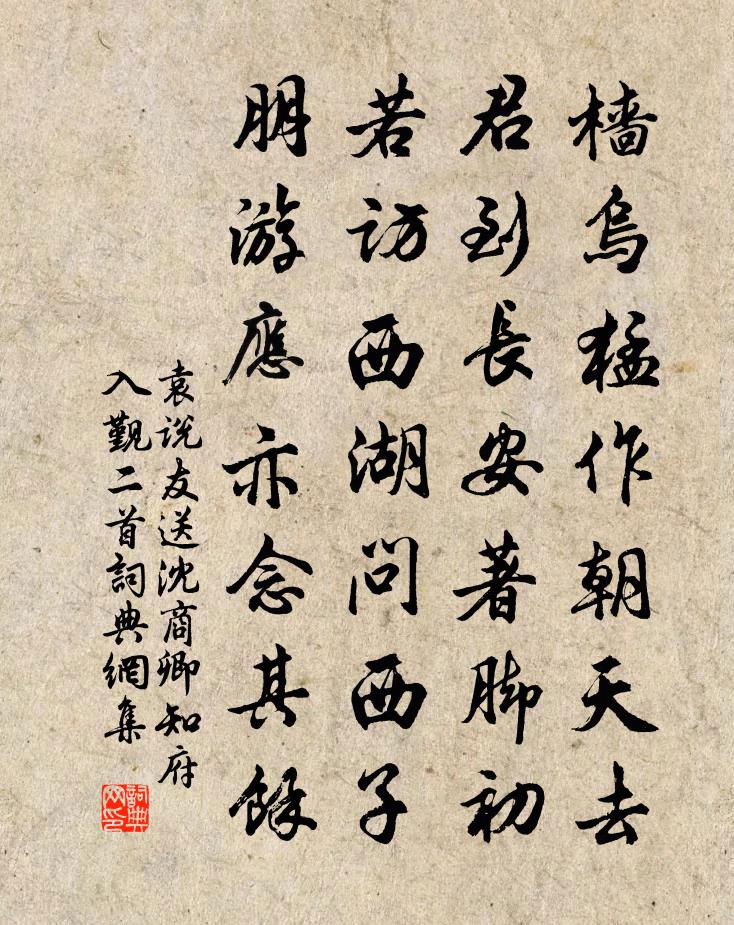 檣烏猛作朝天去
君到長安著脚初
若訪西湖問西子
朋游應亦念其餘
袁说友送沈商卿知府
入觐二首詞典網集
詞典网印